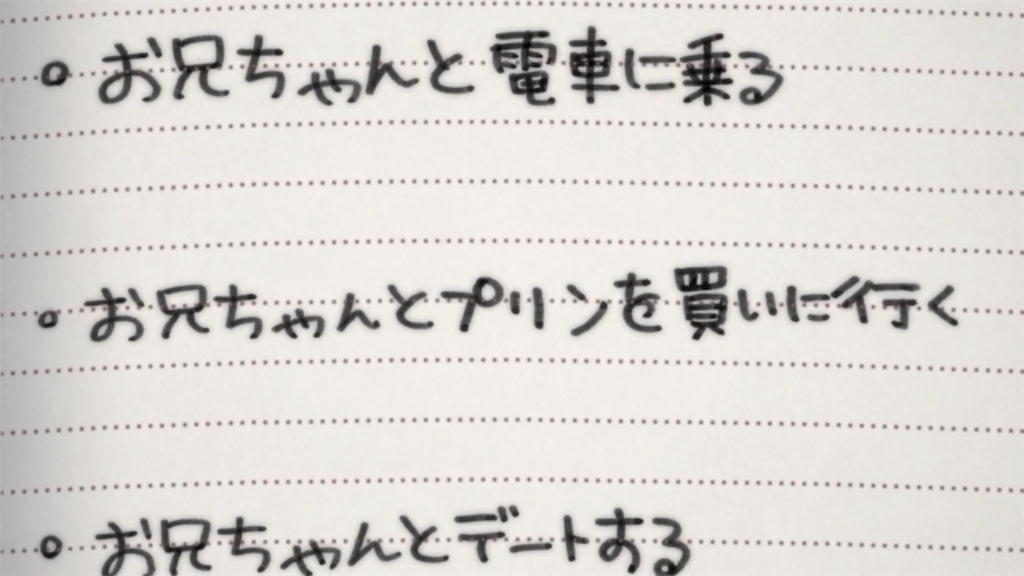 ○ お兄ちゃんと電車に乗る
○ お兄ちゃんとプリンを買いに行く
○ お兄ちゃんとデートする